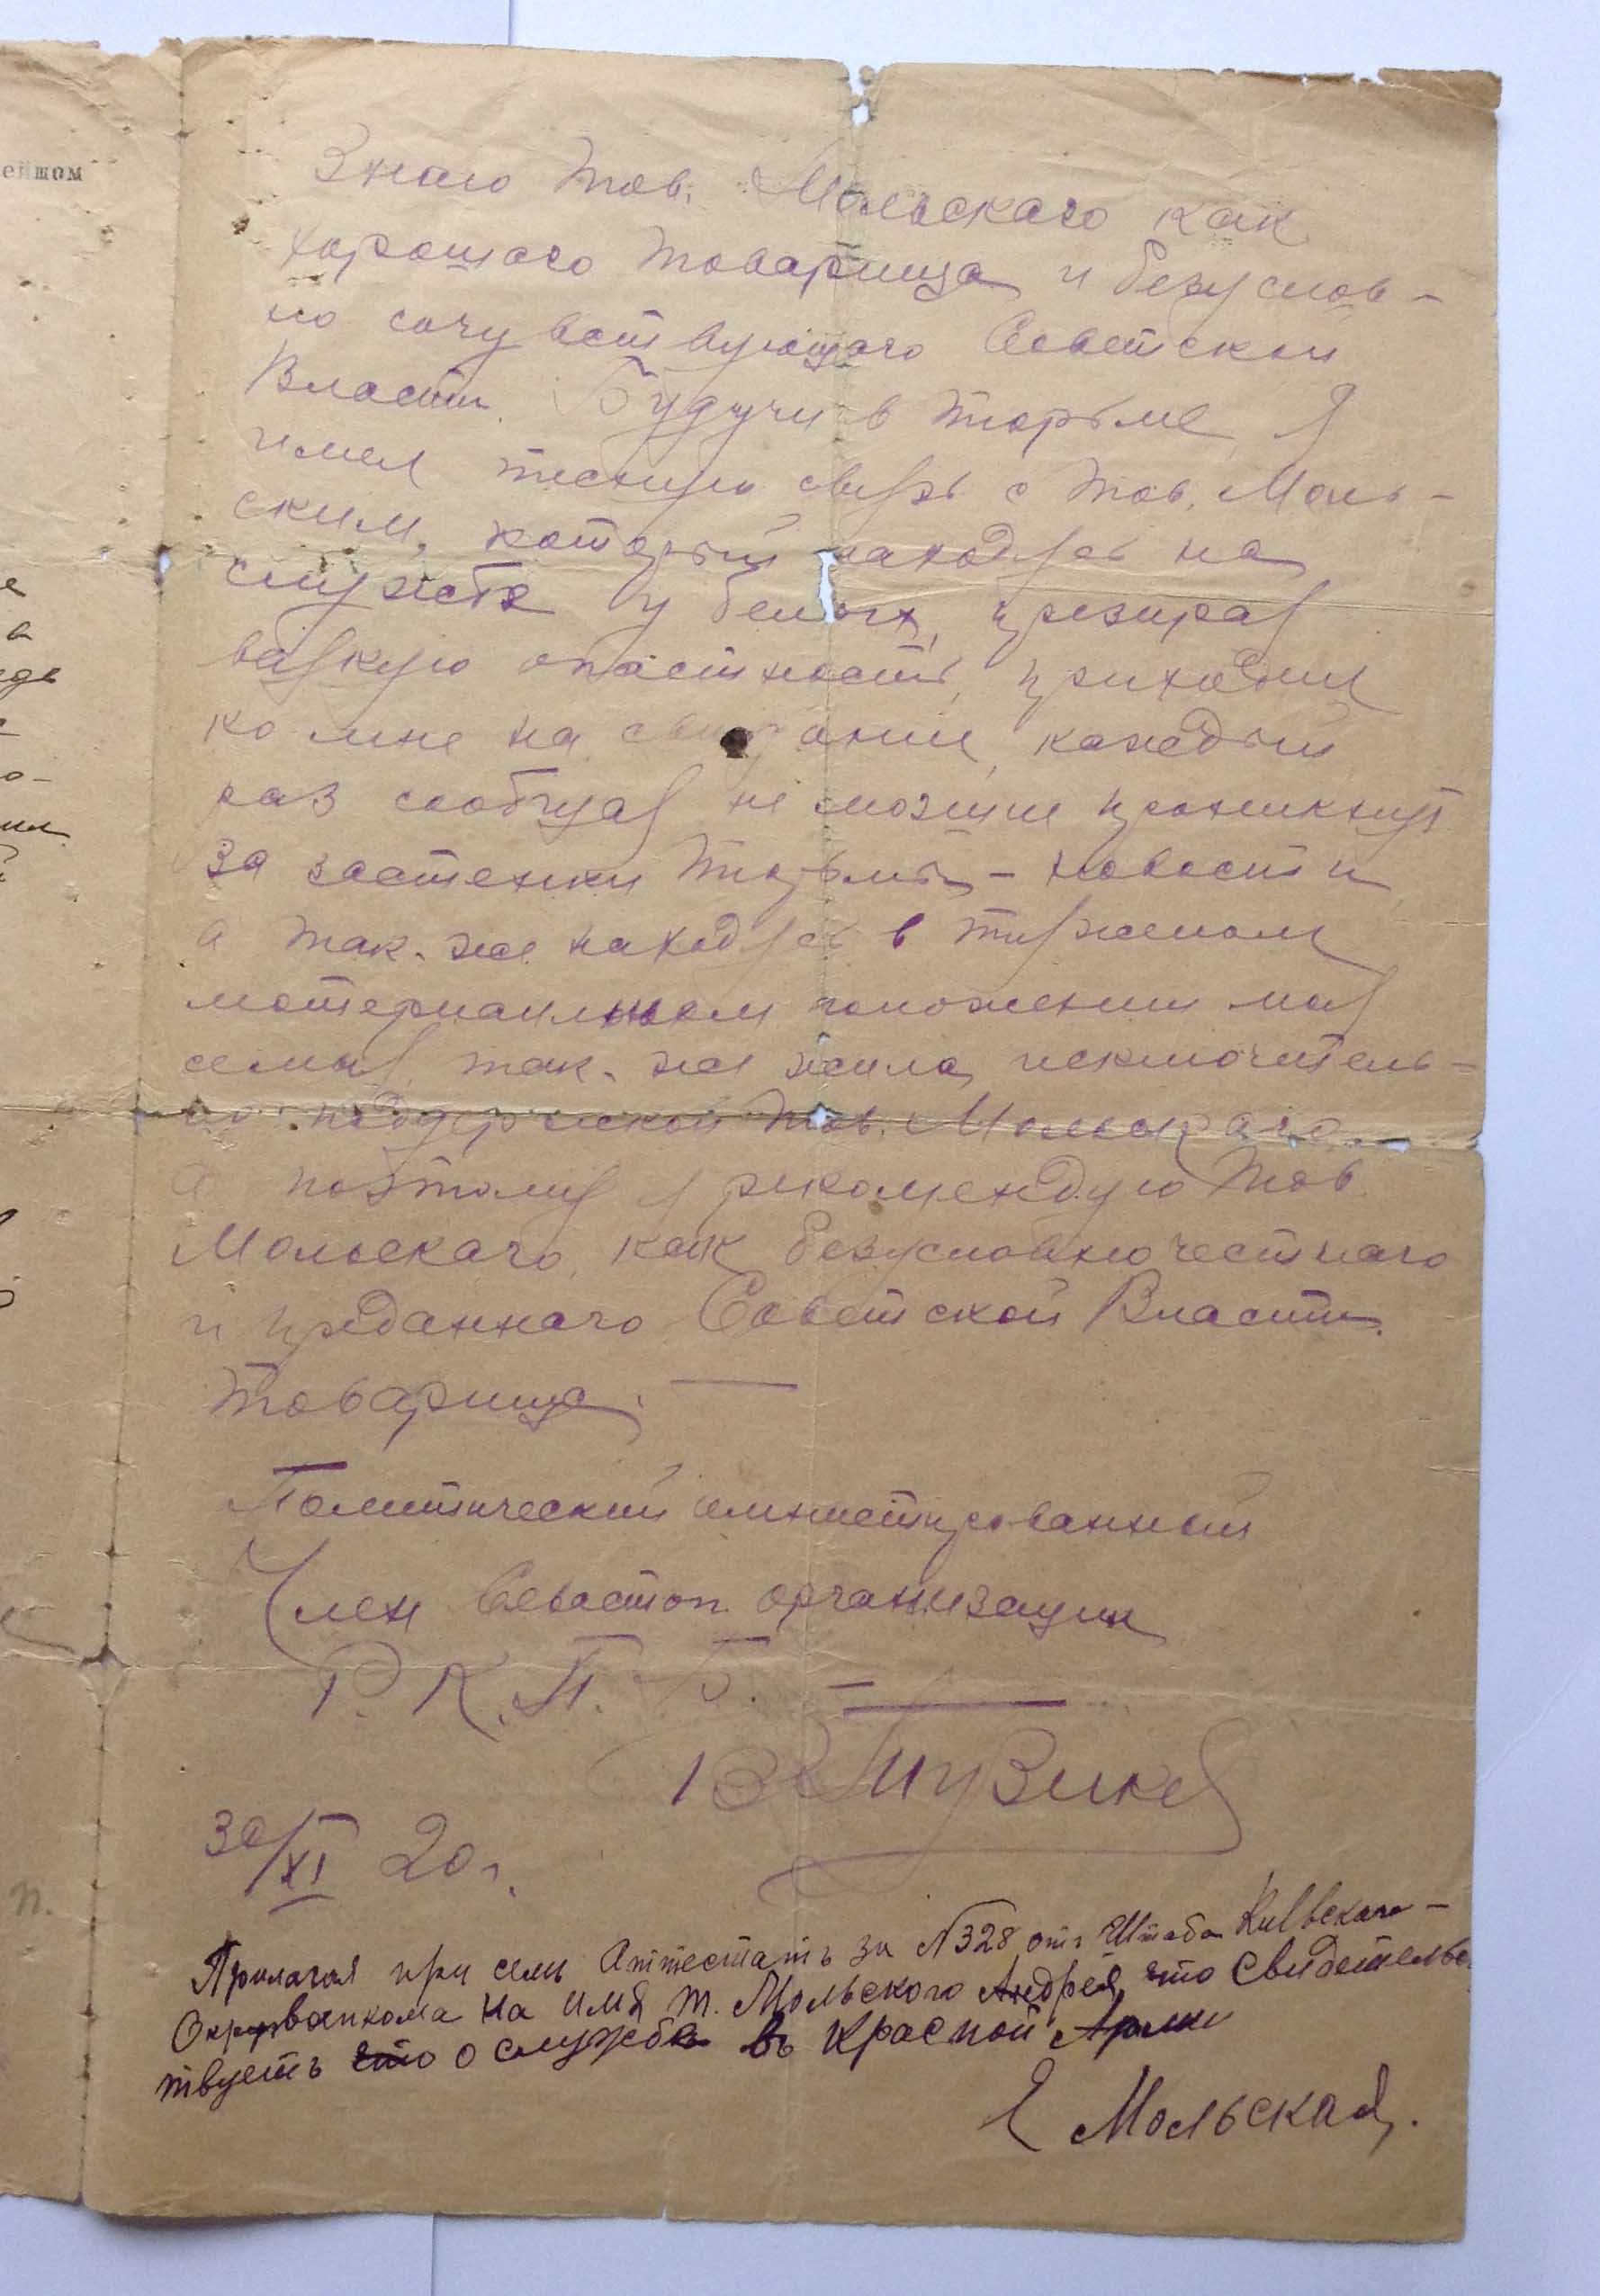 ейшом
Знаю тов. Мольскаго как
хорошаго товарища и безуслов-
но сочувствующаго Советской
Власти. Будучи в тюрьме, я
имел тесную связь с тов. Моль-
ским, который находясь на
службе у белых, презирая
всякую опастность, приходил
ко мне на свидание, каждый
раз сообщая не могшие проникнуть
за застенки тюрьмы - новости
а так-же находясь в тяжелом
материальном положении моя
семья, так-же жила исключитель-
но поддержкой тов. Мольскаго
а поэтому я рекомендую тов.
Мольскаго, как безусловно честнаго
и преданнаго Советской Власти
товарища. —
Политический амнистированный
Член Севастоп. организации
Р.К.П.Б. —
30/XI 20 г.
Прилагая при семъ Аттестатъ за №328 отъ Штаба Киевскаго-
Окрвоенкома на имя т. Мольского Андрея, что Свидетельс
твуетъ что о службе въ Красной Армии
Е Мольская.